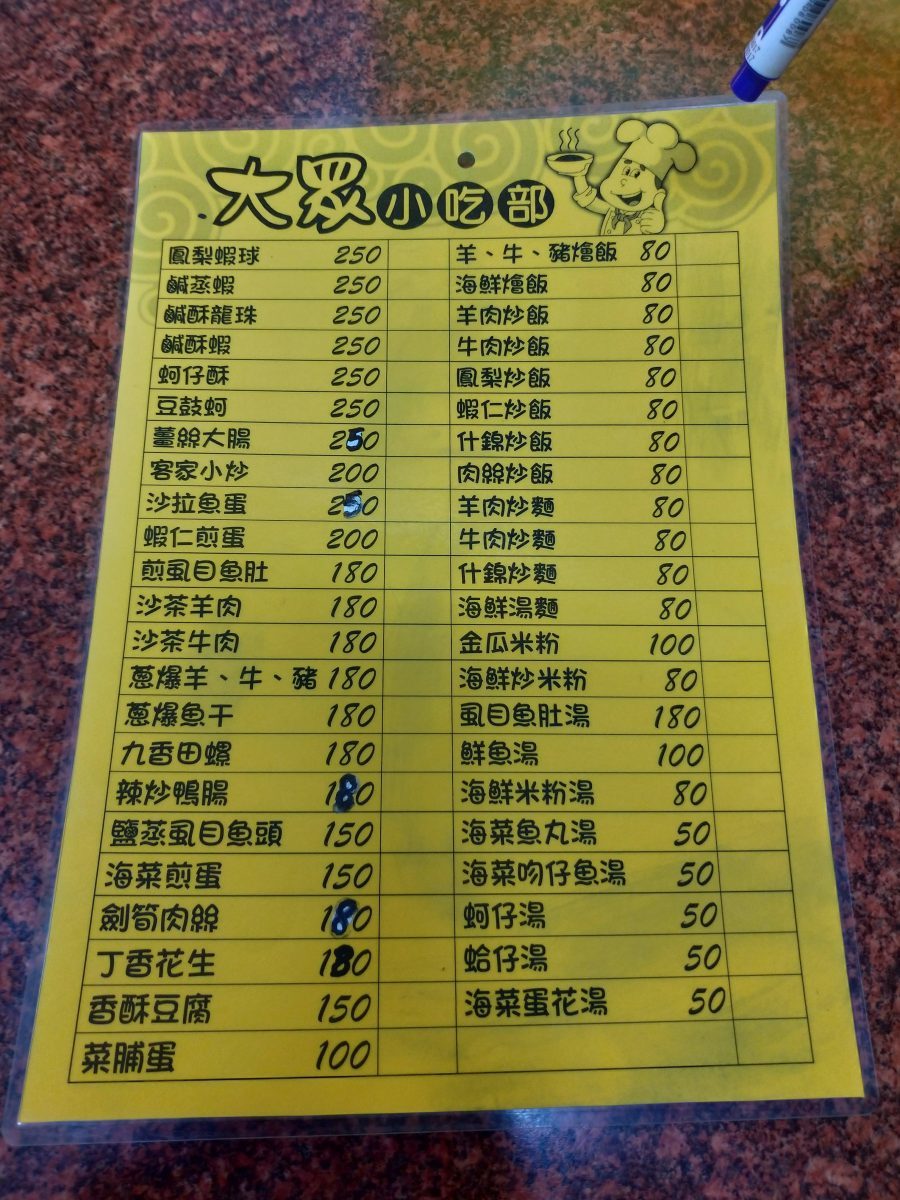 大眾小吃部
鳳梨蝦球 250
鹹蒸蝦 250
鹹酥龍珠 250
鹹酥蝦 250
蚵仔酥 250
豆鼓蚵 250
薑絲大腸 250
客家小炒 200
沙拉魚蛋 250
蝦仁煎蛋 200
煎虱目魚肚 180
沙茶羊肉 180
沙茶牛肉 180
蔥爆羊、牛、豬 180
蔥爆魚干 180
九香田螺 180
辣炒鴨腸 180
鹽蒸虱目魚頭 150
海菜煎蛋 150
劍筍肉絲 180
丁香花生 180
香酥豆腐 150
菜脯蛋 100
羊、牛、豬燴飯 80
海鮮燴飯 80
羊肉炒飯 80
牛肉炒飯 80
鳳梨炒飯 80
蝦仁炒飯 80
什錦炒飯 80
肉絲炒飯 80
羊肉炒麵 80
牛肉炒麵 80
什錦炒麵 80
海鮮湯麵 80
金瓜米粉 100
海鮮炒米粉 80
虱目魚肚湯 180
鮮魚湯 100
海鮮米粉湯 80
海菜魚丸湯 50
海菜吻仔魚湯 50
蚵仔湯 50
蛤仔湯 50
海菜蛋花湯 50